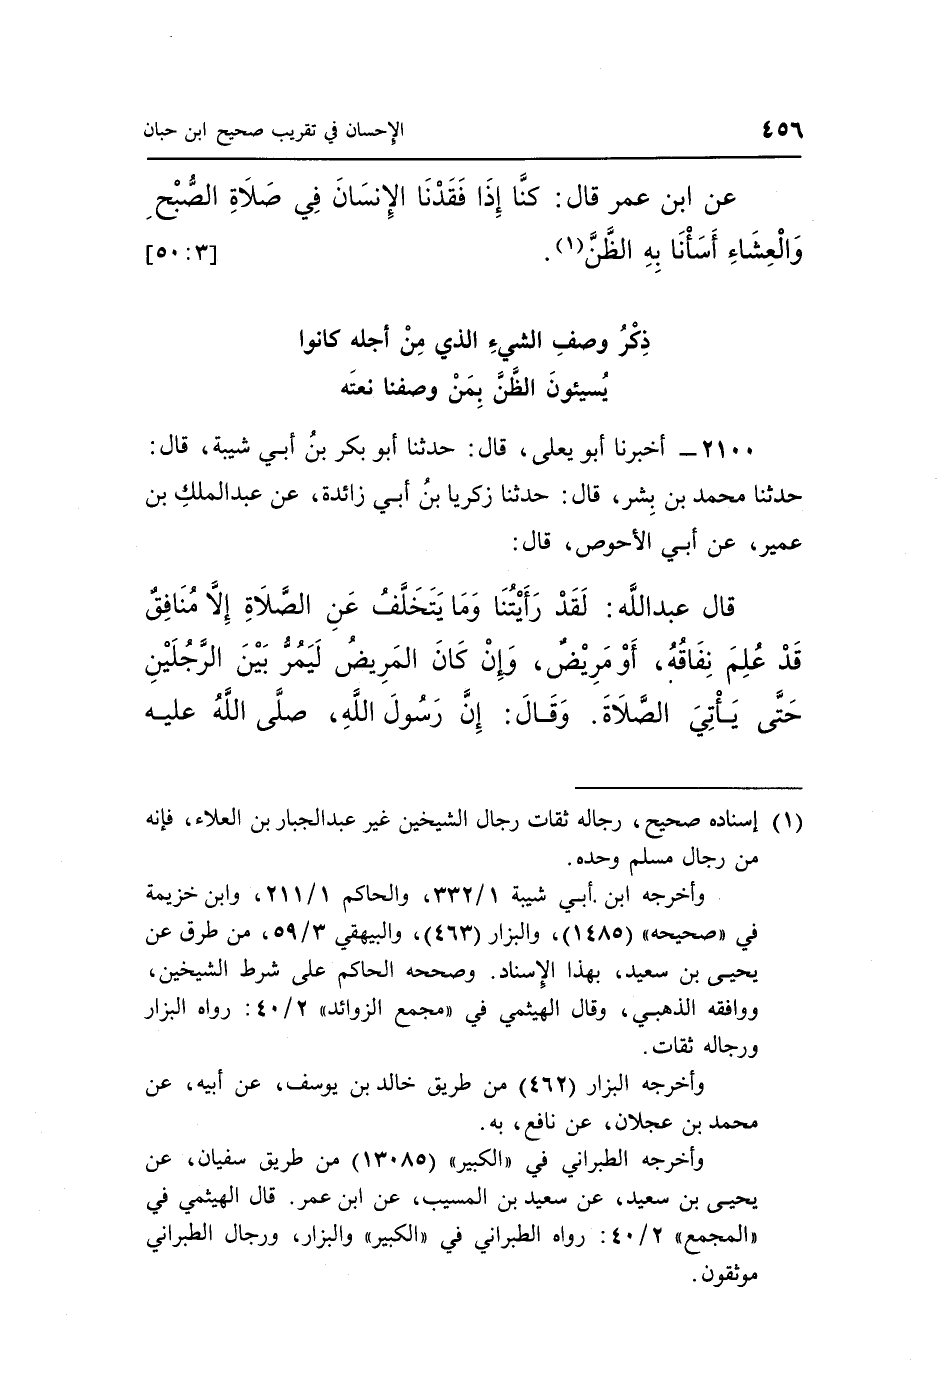 ٤٥٦ الإحسان في تقريب صحيح ابن حبان
عن ابن عمر قال: كنَّا إِذَا فَقَدْنَا الإِنسَانَ فِي صَلَاةِ الصُّبْحِ
وَالْعِشَاءِ أَسَأْنَا بِهِ الظَّنَّ(١). [٣: ٥٠]
ذِكْرُ وصفِ الشيءِ الذي مِنْ أجله كانوا
يُسيئونَ الظَّنَّ بِمَنْ وصفنا نعتَه
٢١٠٠ ـ أخبرنا أبو يعلى، قال: حدثنا أبو بكر بنُ أبي شيبة، قال:
حدثنا محمد بن بِشر، قال: حدثنا زكريا بنُ أبي زائدة، عن عبدالملكِ بن
عمير، عن أبي الأحوص، قال:
قال عبدالله: لَقَدْ رَأَيْتُنَا وَمَا يَتَخَلَّفُ عَنِ الصَّلَاةِ إِلَّا مُنَافِقٌ
قَدْ عُلِمَ نِفَاقُهُ، أَوْ مَرِيْضٌ، وَإِنْ كَانَ المَرِيضُ لَيَمُرُّ بَيْنَ الرَّجُلَيْنِ
حَتَّى يَأْتِيَ الصَّلَاةَ. وَقَالَ: إِنَّ رَسُولَ اللَّهِ، صلَّى اللَّهُ عليه
(١) إسناده صحيح، رجاله ثقات رجال الشيخين غير عبدالجبار بن العلاء، فإنه
من رجال مسلم وحده.
وأخرجه ابن أبي شيبة ٣٣٢/١، والحاكم ٢١١/١، وابن خزيمة
في «صحيحه» (١٤٨٥)، والبزار (٤٦٣)، والبيهقي ٥٩/٣، من طرق عن
يحيى بن سعيد، بهذا الإسناد. وصححه الحاكم على شرط الشيخين،
ووافقه الذهبي، وقال الهيثمي في «مجمع الزوائد» ٤٠/٢: رواه البزار
ورجاله ثقات.
وأخرجه البزار (٤٦٢) من طريق خالد بن يوسف، عن أبيه، عن
محمد بن عجلان، عن نافع، به.
وأخرجه الطبراني في «الكبير» (١٣٠٨٥) من طريق سفيان، عن
يحيى بن سعيد، عن سعيد بن المسيب، عن ابن عمر. قال الهيثمي في
«المجمع» ٤٠/٢: رواه الطبراني في «الكبير» والبزار، ورجال الطبراني
موثقون.